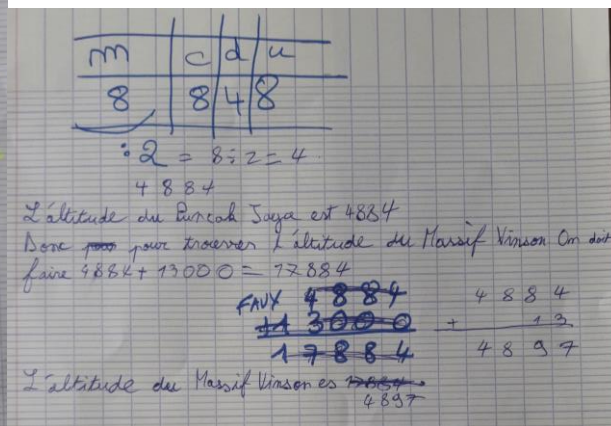 m c d u
8 8 4 8
: 2 = 8 ÷ 2 = 4
4 8 8 4
L'altitude du Puncak Jaya est 4884
Donc pour trouver l'altitude du Massif Vinson On doit
faire 4884 + 13000 = 17884
FAUX 4884 4884
+13000 + 13
17884 4897
L'altitude du Massif Vinson es 17884
4897